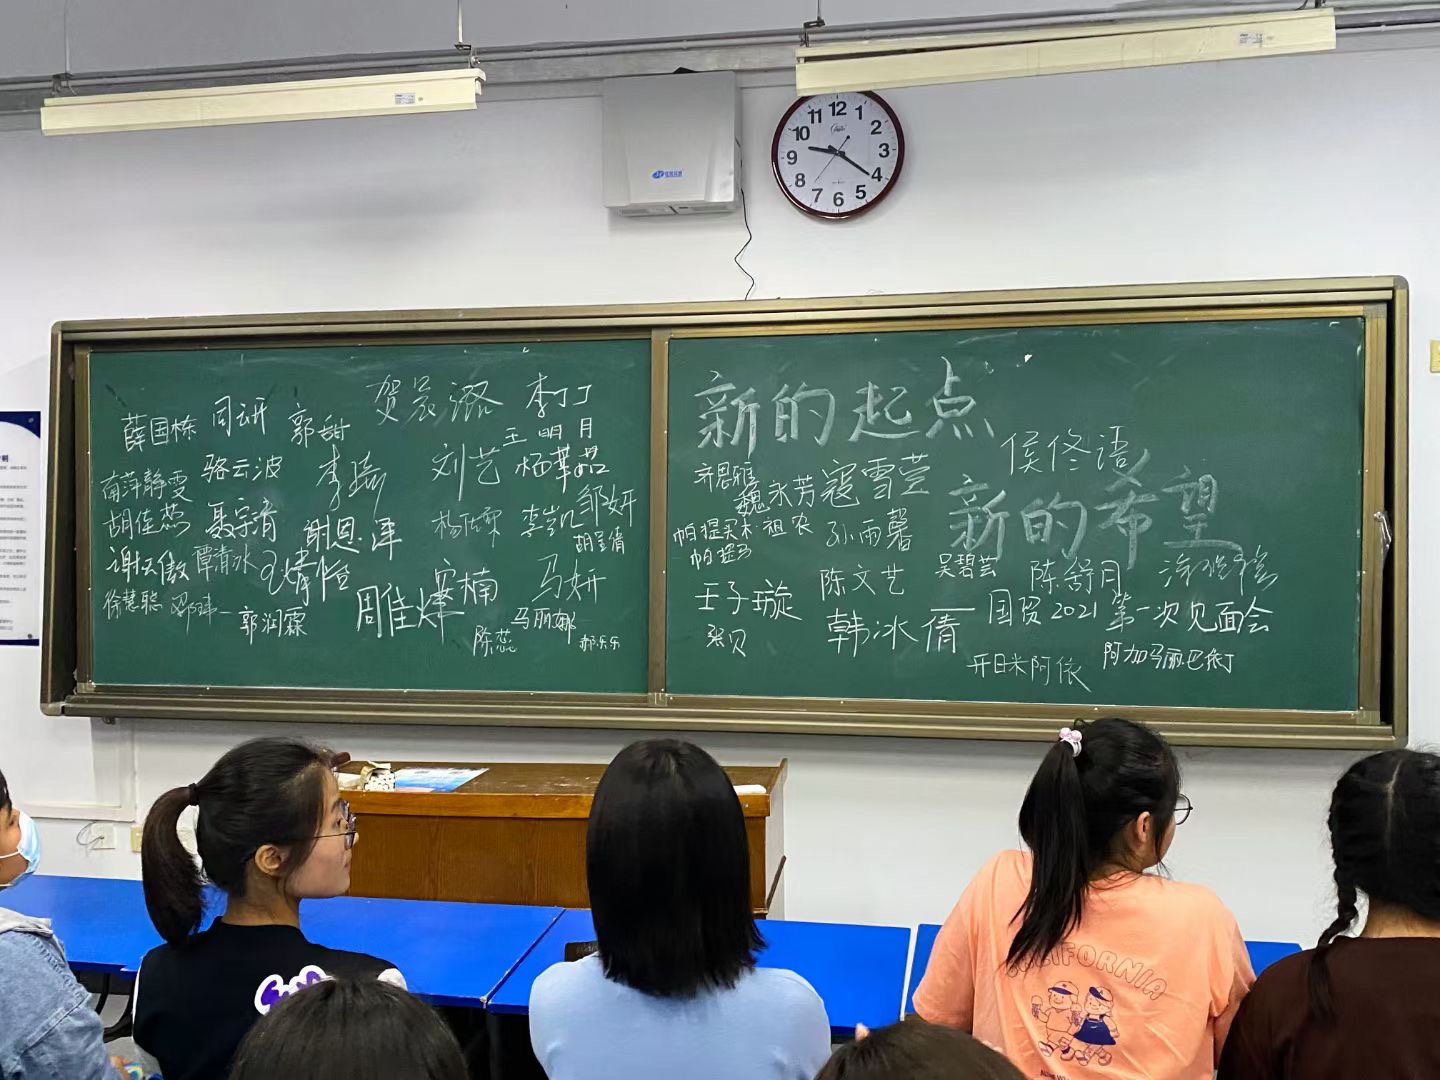 12 1 2 3 4 5 6 7 8 9 10 11
贺晨潞 李丁丁
薛国栋 闫研 郭甜
王明月
骆云波 李瑶 刘艺 杨華茹
南萍静雯
胡佳燕 聂宇清 谢恩泽 李岩 邹妍
胡呈倩
谢天傲 覃清冰 马妍
徐慧聪 郭润霖 周佳烨 楠
陈蕊 马丽娜 郝乐乐
新的起点
侯佟语
齐思雅 魏永芳 寇雪萱
新的希望
帕提买木 祖农 孙雨馨
帕提马
吴碧芸 陈舒月
王子璇 陈文艺
国贸2021第一次见面会
张贝 韩冰倩
开日米阿依 阿加马丽巴依丁
CALIFORNIA